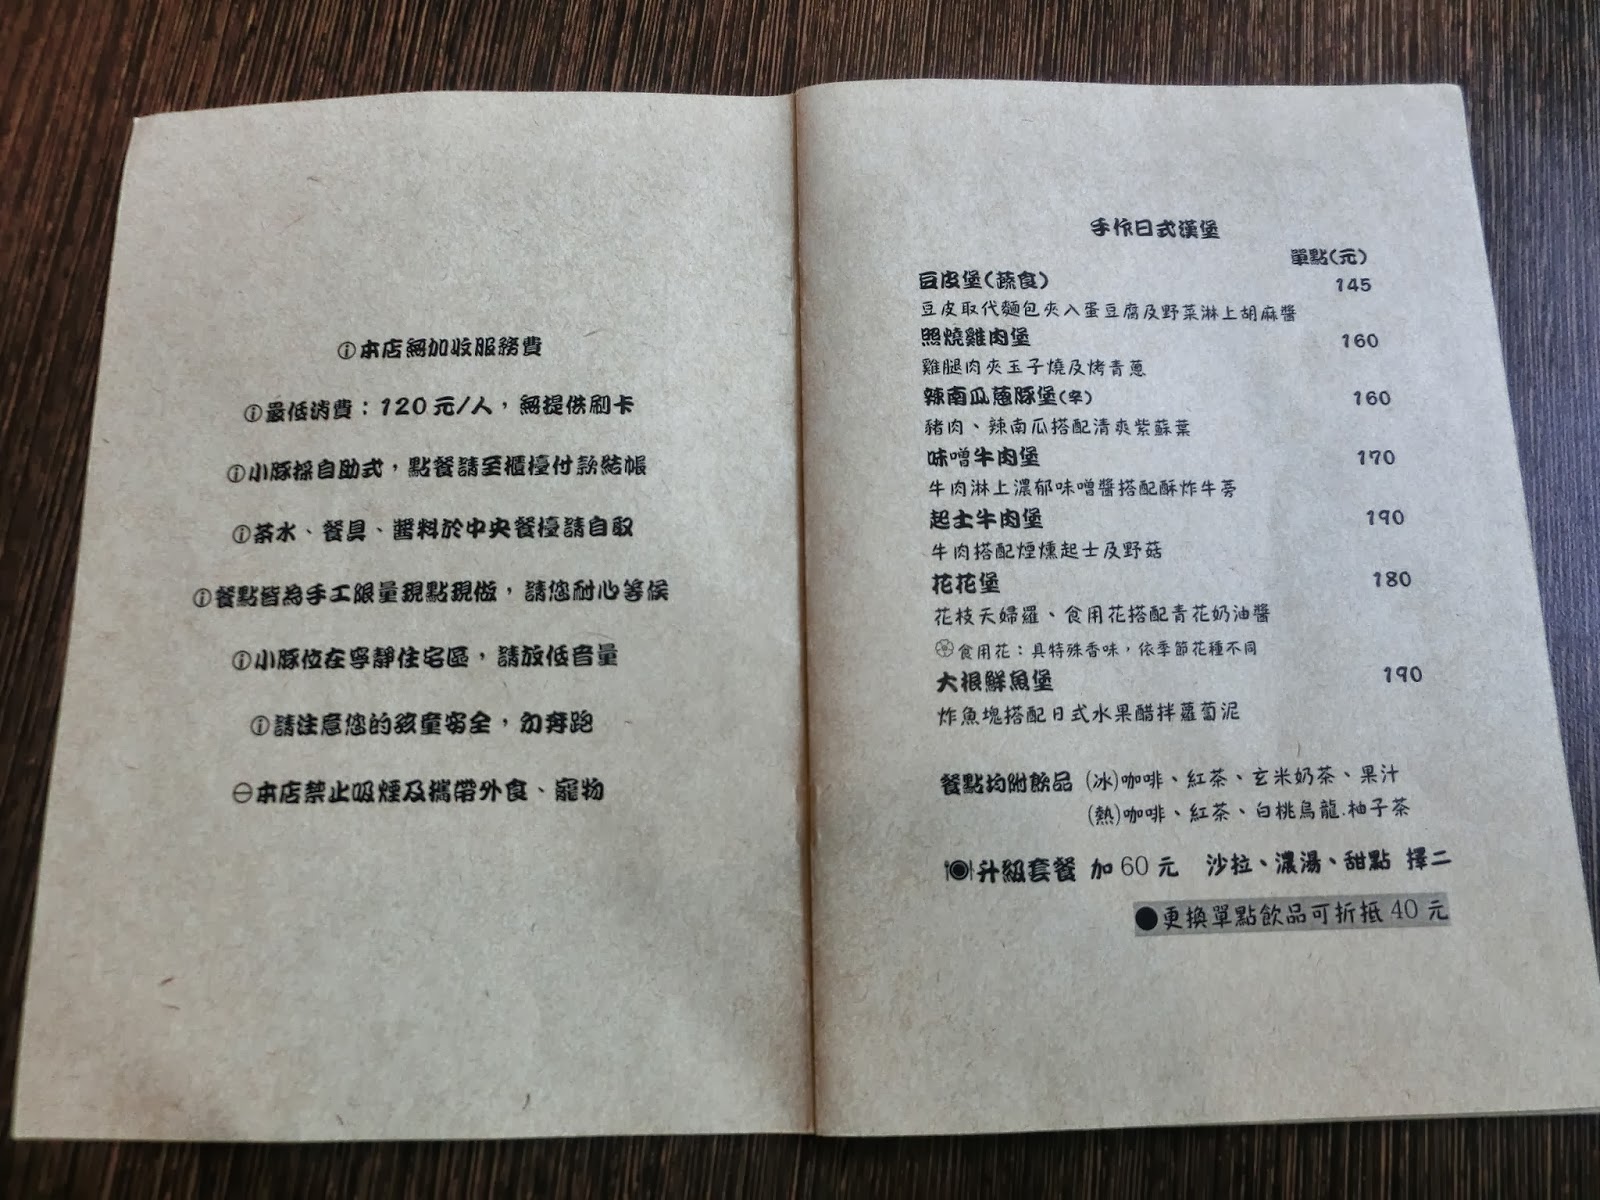 ⓘ本店無加收服務費
ⓘ最低消費：120元/人，無提供刷卡
ⓘ小豚採自助式，點餐請至櫃檯付款結帳
ⓘ茶水、餐具、醬料於中央餐檯請自取
ⓘ餐點皆為手工限量現點現做，請您耐心等侯
ⓘ小豚位在寧靜住宅區，請放低音量
ⓘ請注意您的孩童安全，勿奔跑
⊖本店禁止吸煙及攜帶外食、寵物
手作日式漢堡
單點(元)
豆皮堡(蔬食) 145
豆皮取代麵包夾入蛋豆腐及野菜淋上胡麻醬
照燒雞肉堡 160
雞腿肉夾玉子燒及烤青蔥
辣南瓜蔥豚堡(辛) 160
豬肉、辣南瓜搭配清爽紫蘇葉
味噌牛肉堡 170
牛肉淋上濃郁味噌醬搭配酥炸牛蒡
起士牛肉堡 190
牛肉搭配煙燻起士及野菇
花花堡 180
花枝天婦羅、食用花搭配青花奶油醬
食用花：具特殊香味，依季節花種不同
大根鮮魚堡 190
炸魚塊搭配日式水果醋拌蘿蔔泥
餐點均附飲品 (冰)咖啡、紅茶、玄米奶茶、果汁
(熱)咖啡、紅茶、白桃烏龍.柚子茶
升級套餐 加60元 沙拉、濃湯、甜點 擇二
●更換單點飲品可折抵40元